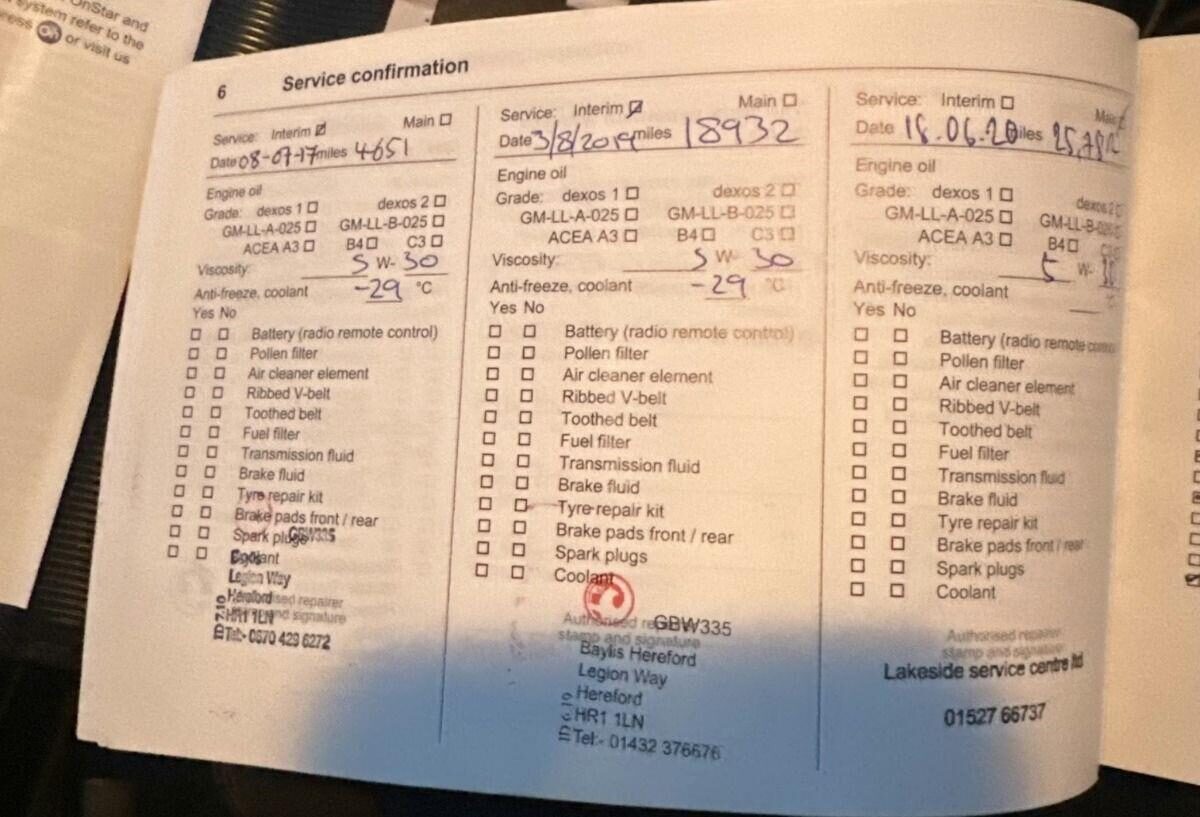 OnStar and
system refer to the
or visit us
6 Service confirmation
Service: Interim ☑ Main ☐
Date 08-07-17 miles 4651
Engine oil
Grade: dexos 1 ☐ dexos 2 ☐
GM-LL-A-025 ☐ GM-LL-B-025 ☐
ACEA A3 ☐ B4 ☐ C3 ☐
Viscosity: 5 W- 30
Anti-freeze, coolant -29 °C
Yes No
☐ ☐ Battery (radio remote control)
☐ ☐ Pollen filter
☐ ☐ Air cleaner element
☐ ☐ Ribbed V-belt
☐ ☐ Toothed belt
☐ ☐ Fuel filter
☐ ☐ Transmission fluid
☐ ☐ Brake fluid
☐ ☐ Tyre repair kit
☐ ☐ Brake pads front / rear
☐ ☐ Spark plugs
GBW335
☐ ☐ Coolant
Legion Way
Hereford
HR1 1LN
Tel:- 0870 429 6272
Service: Interim ☑ Main ☐
Date 3/8/2019 miles 18932
Engine oil
Grade: dexos 1 ☐ dexos 2 ☐
GM-LL-A-025 ☐ GM-LL-B-025 ☐
ACEA A3 ☐ B4 ☐ C3 ☐
Viscosity: 5 W- 30
Anti-freeze, coolant -29 °C
Yes No
☐ ☐ Battery (radio remote control)
☐ ☐ Pollen filter
☐ ☐ Air cleaner element
☐ ☐ Ribbed V-belt
☐ ☐ Toothed belt
☐ ☐ Fuel filter
☐ ☐ Transmission fluid
☐ ☐ Brake fluid
☐ ☐ Tyre repair kit
☐ ☐ Brake pads front / rear
☐ ☐ Spark plugs
☐ ☐ Coolant
Authorised
GBW335
stamp and signature
Baylis Hereford
Legion Way
Hereford
HR1 1LN
Tel:- 01432 376676
Service: Interim ☐ Main
Date 18.06.20 miles
Engine oil
Grade: dexos 1 ☐ dexos 2 ☐
GM-LL-A-025 ☐ GM-LL-B-025 ☐
ACEA A3 ☐ B4 ☐ C3
Viscosity: 5 W- 30
Anti-freeze, coolant °C
Yes No
☐ ☐ Battery (radio remote control)
☐ ☐ Pollen filter
☐ ☐ Air cleaner element
☐ ☐ Ribbed V-belt
☐ ☐ Toothed belt
☐ ☐ Fuel filter
☐ ☐ Transmission fluid
☐ ☐ Brake fluid
☐ ☐ Tyre repair kit
☐ ☐ Brake pads front / rear
☐ ☐ Spark plugs
☐ ☐ Coolant
Authorised repairer
stamp and signature
Lakeside service centre ltd
01527 66737